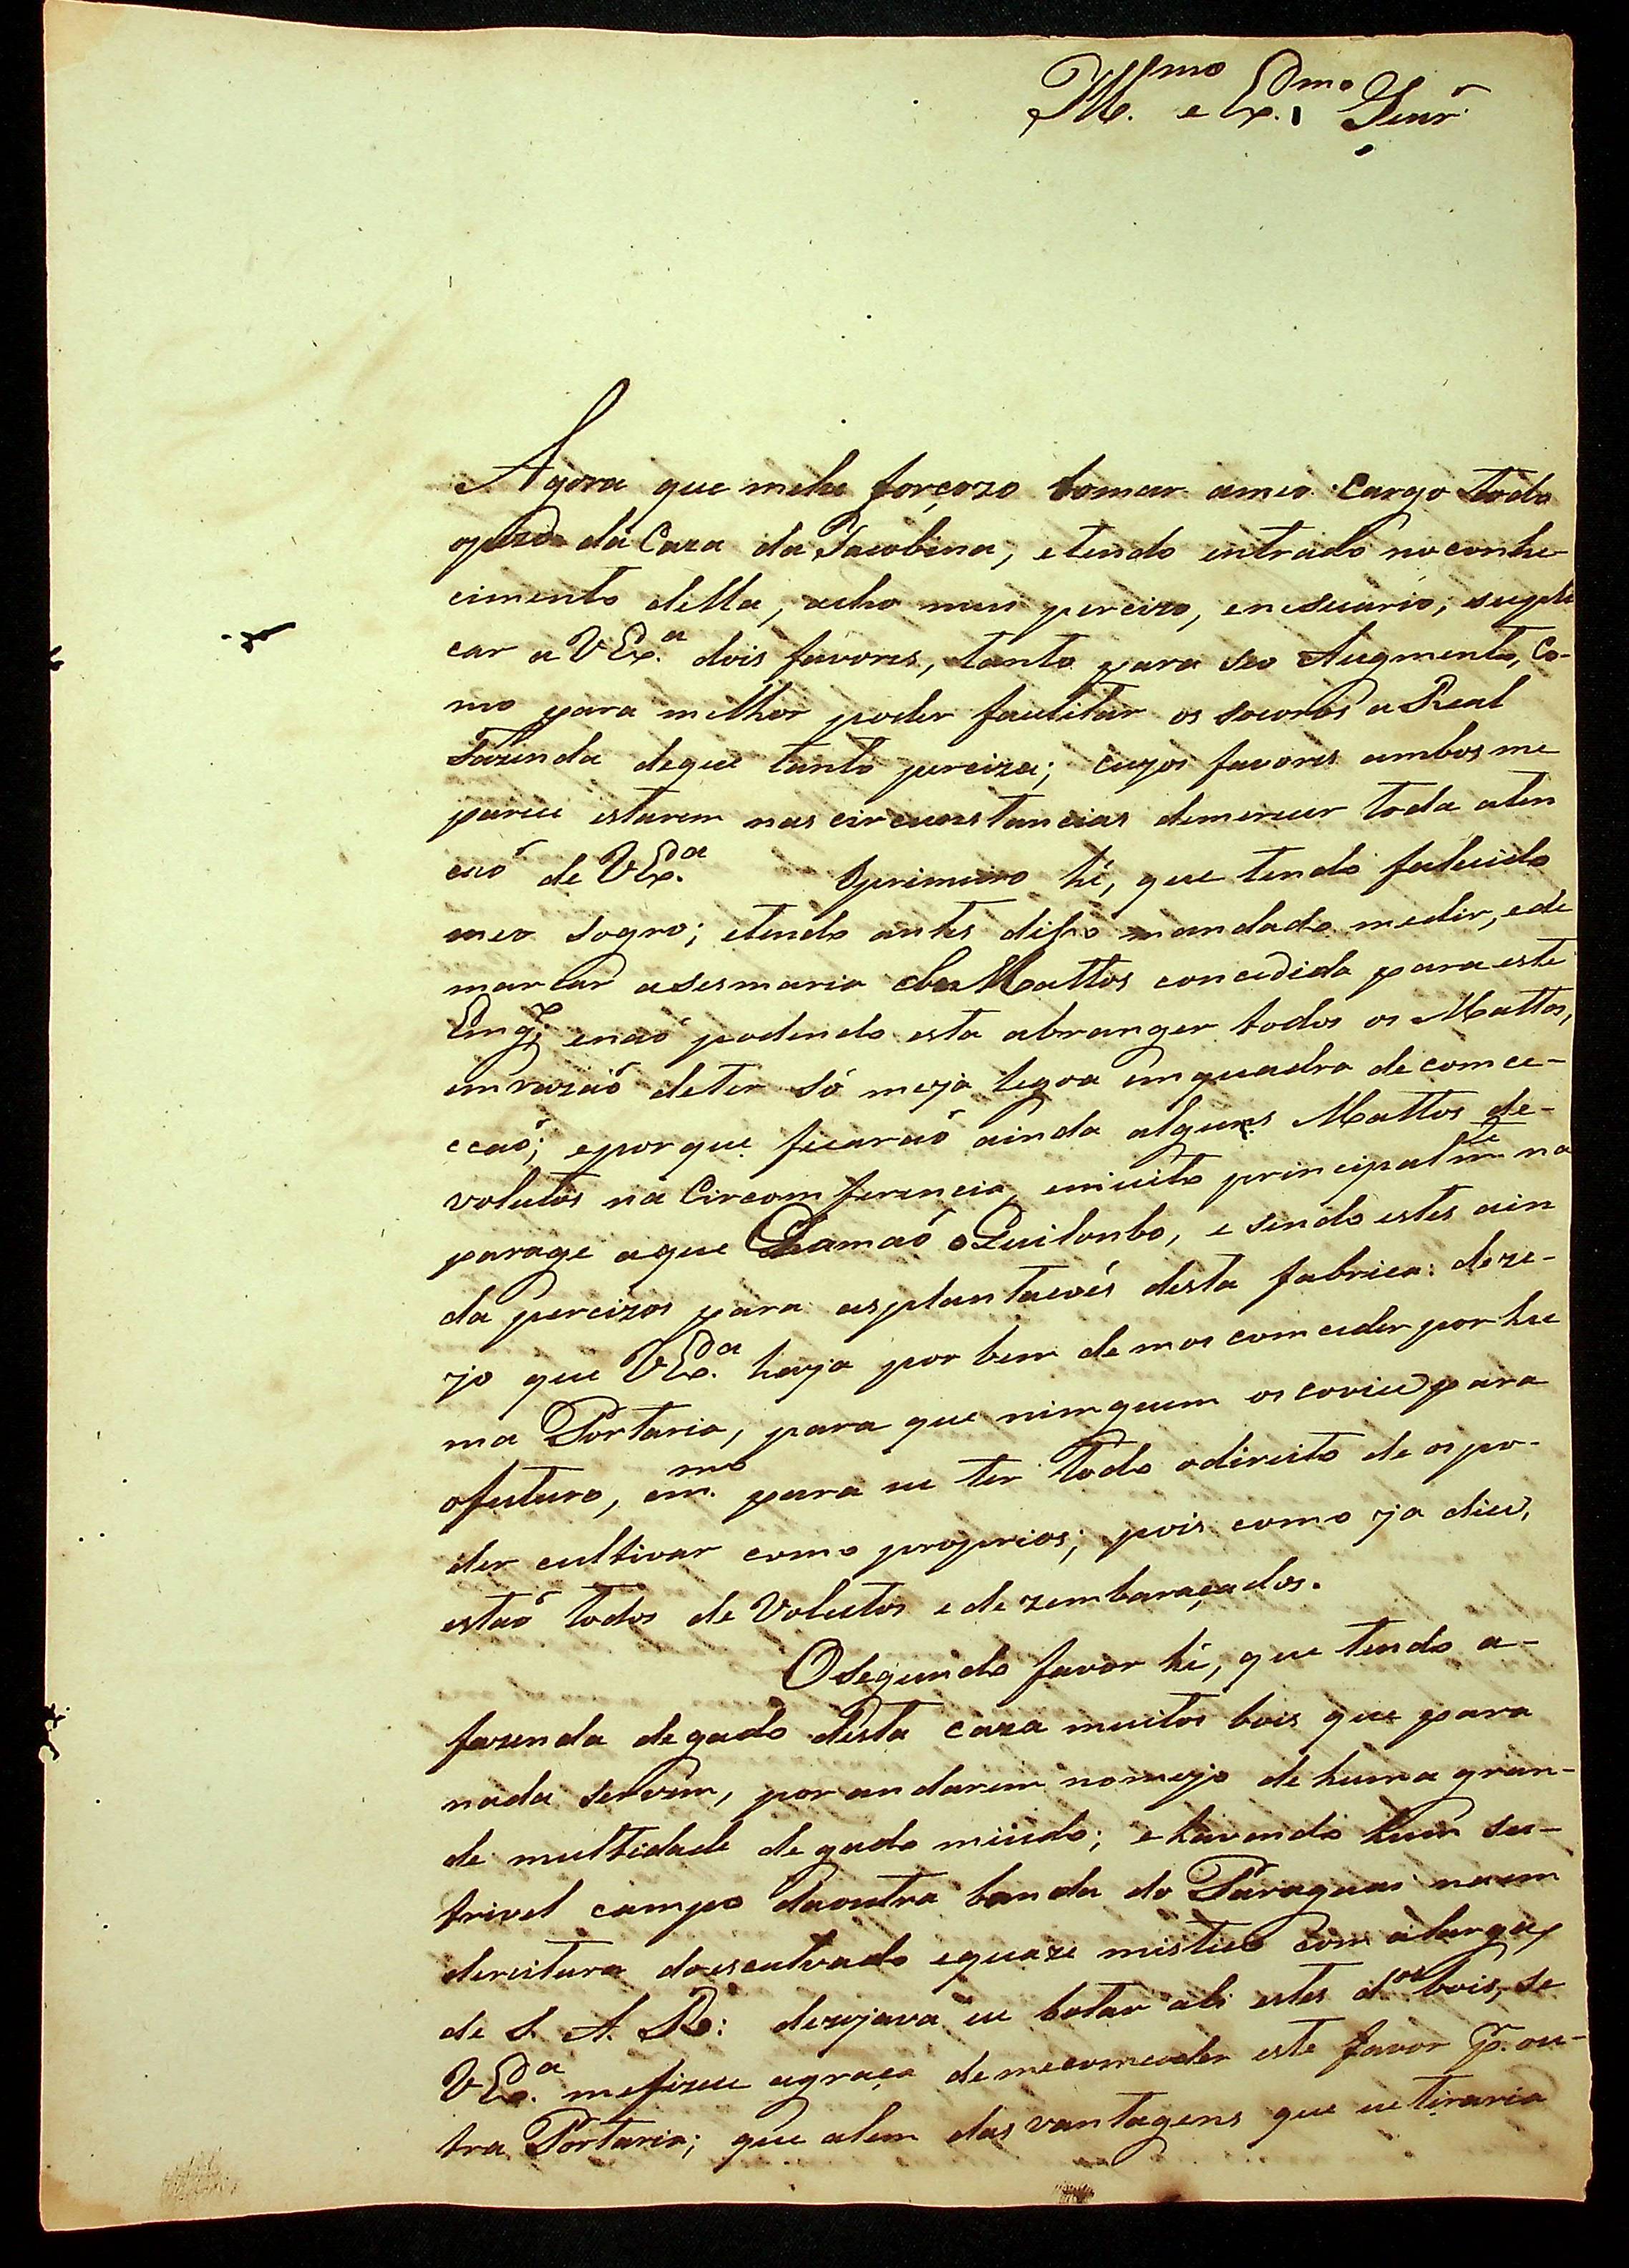 Ill.mo e Ex.mo Senr
Agora que mehe forçozo tomar ameo Cargo todo
opezo da Caza da Jacobina, etendo entrado noconhe-
cimento della, acho mui percizo, enesesario, supli
car a VEx.a dois favores, tanto para seo Augmento, Co-
mo para melhor poder facilitar os socoros a Real
Fazenda deque tanto perciza; cujos favores ambos me
parece estarem nas circunstancias demerecer toda aten
caõ de VEx.a Oprimeiro hé, que tendo falecido
meo sogro; etendo antes diso mandado medir, ede
marcar asesmaria de Mattos concedida para este
Eng.o, enaõ podendo esta abranger todos os Mattos,
em razaõ deter só meja legoa em quadra de comce-
ccaõ; eporque ficaraõ ainda alguns Mattos de-
volutos na Circomferencia, emuito principalm.te na
parage aque Chamaõ o Quilonbo, e sendo estes ain
da percizos para asplantacoés desta fabrica: deze-
jo que VEx.a haja por bem de mos comceder por hu
ma Portaria, para que nimguem os covice para
ofuturo, em.mo para eu ter todo odireito de os po-
der cultivar como proprios; pois como ja dice,
estaõ todos de Volutos e dezembaraçados.
Osegundo favor hé, que tendo a-
fazenda de gado desta caza muitos bois que para
nada servem, por andarem nomejo de huma gran-
de multidade de gado miudo; e havendo hum su-
frivel campo daoutra banda do Paraguai naem
dereitura doescalvado equaze mistico com alarga,
de S. A. R: dezejava eu botar ali estes d.os bois, se
VEx.a mefizece agraça demecomceder este favor p.r ou-
tra Portaria; que alem das vantagens que eu tiraria